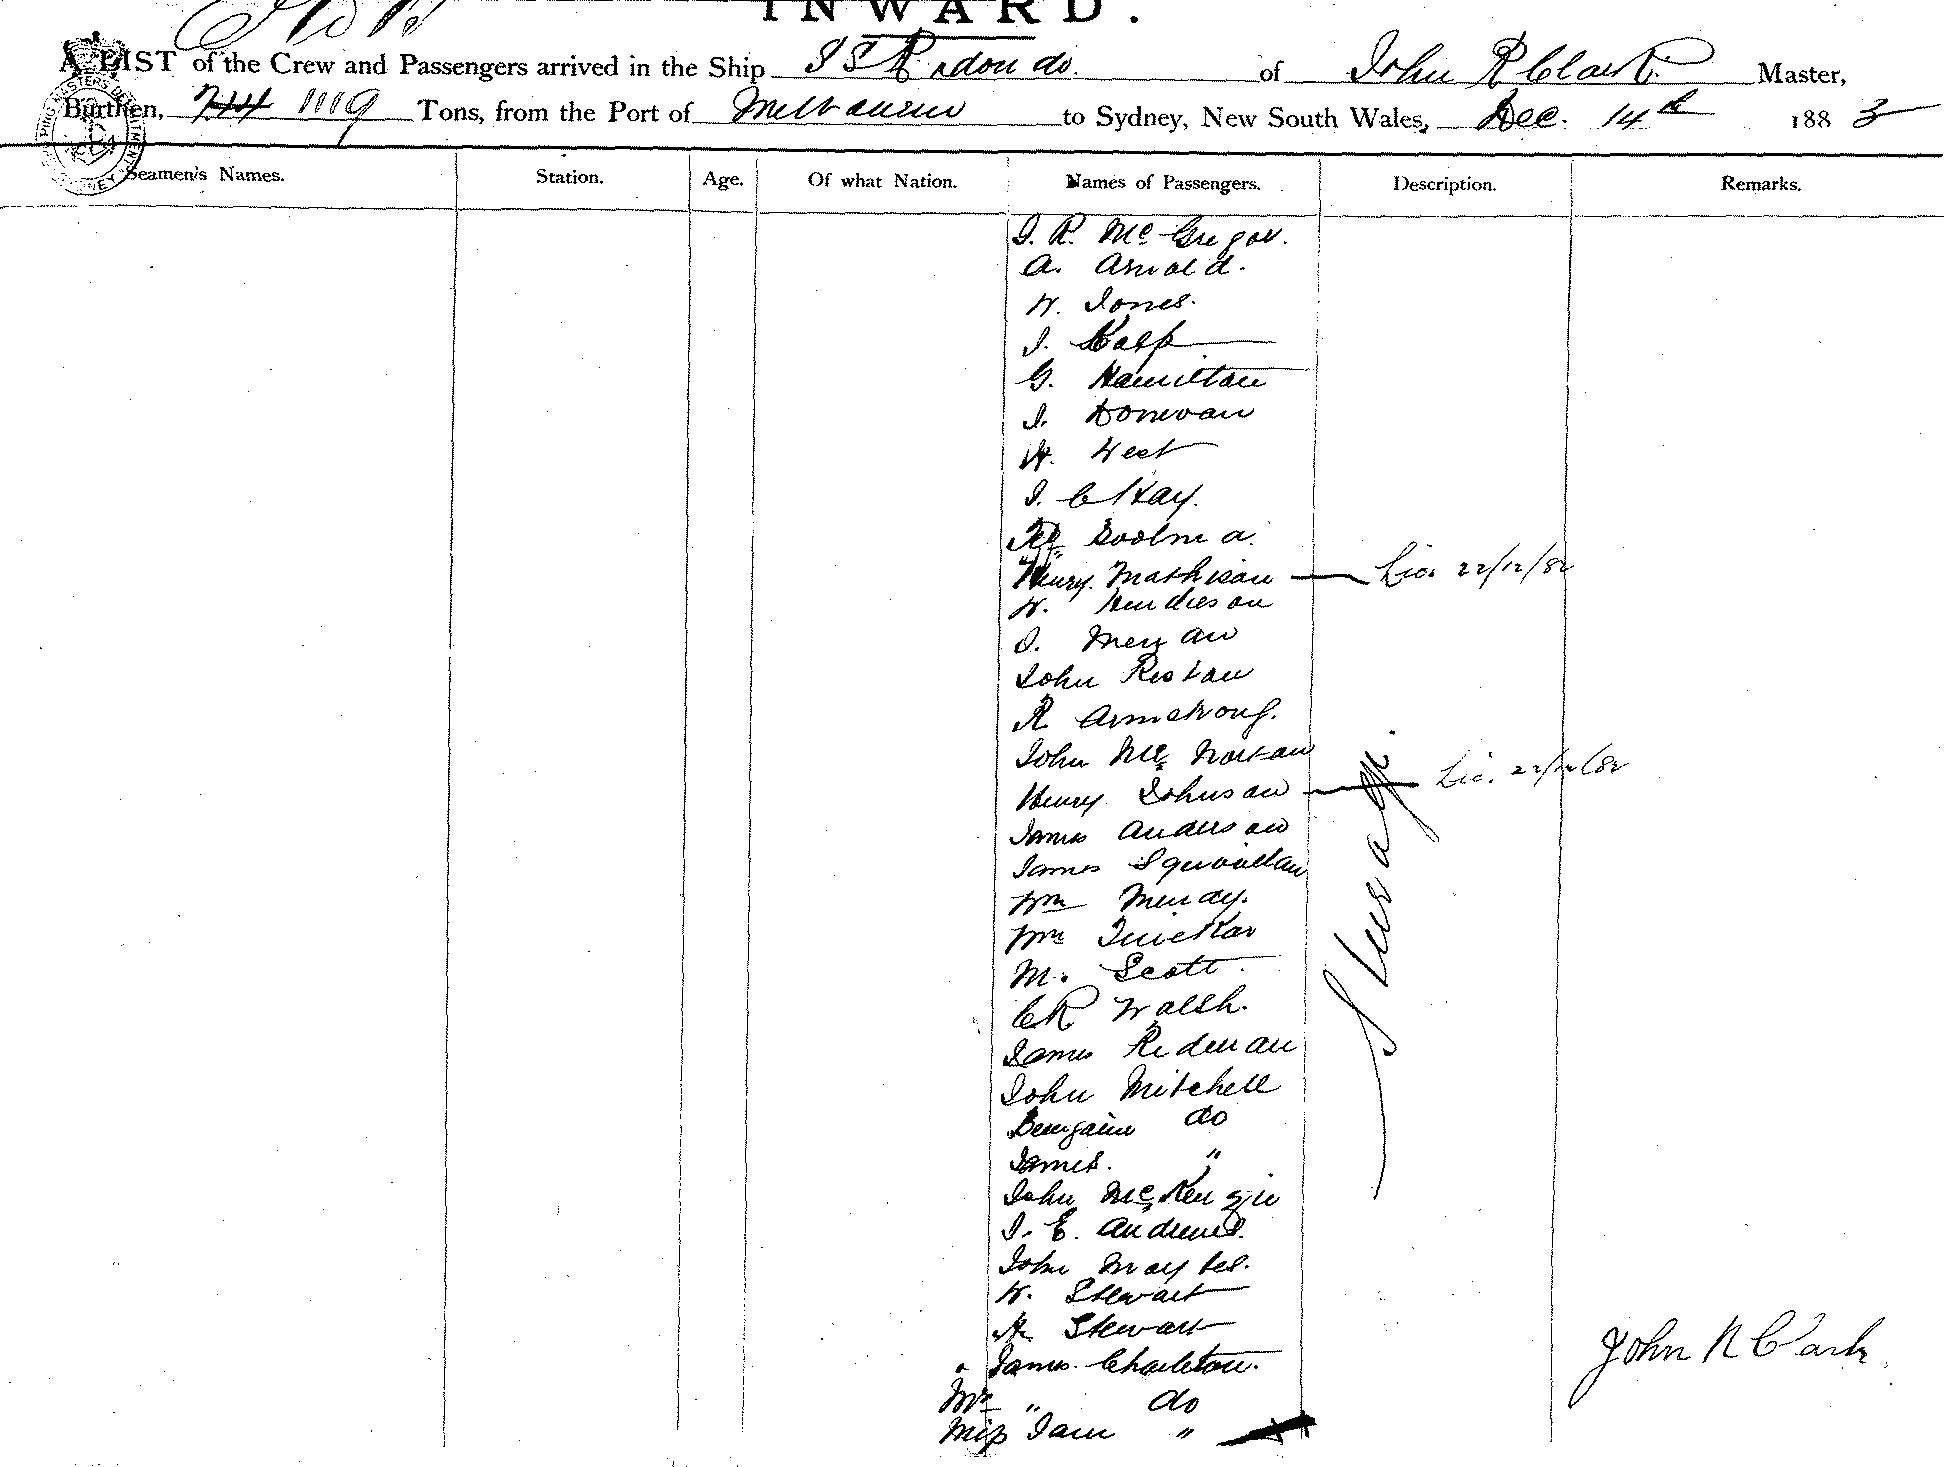 INWARD.
A LIST of the Crew and Passengers arrived in the Ship SS Rodondo. of John R Clark. Master,
Burthen, 744 1119 Tons, from the Port of Melbourne to Sydney, New South Wales, Dec. 14th 1883
Seamen's Names. Station. Age. Of what Nation. Names of Passengers. Description. Remarks.
J. R. McGregor.
A. Arnold.
W. Jones.
J.
G. Hamilton
J. Donovan
H. West
J. C Kay.
Henry Mathison Lic. 22/12/82
W. Hendieson
J.
John Ristan
R Armstrong.
John Mc Nortan
Henry Johnson Lic. 22/12/82
James Anderson
James
Wm
Wm
M. Scott.
CR Walsh.
James Redman
John Mitchell
Benjain do
James. "
John McKenzie
J. E. Andrews.
John
W. Stewart
A Stewart
James Charleton.
Mrs " do
Miss Jam "
Steerage.
John R Clark